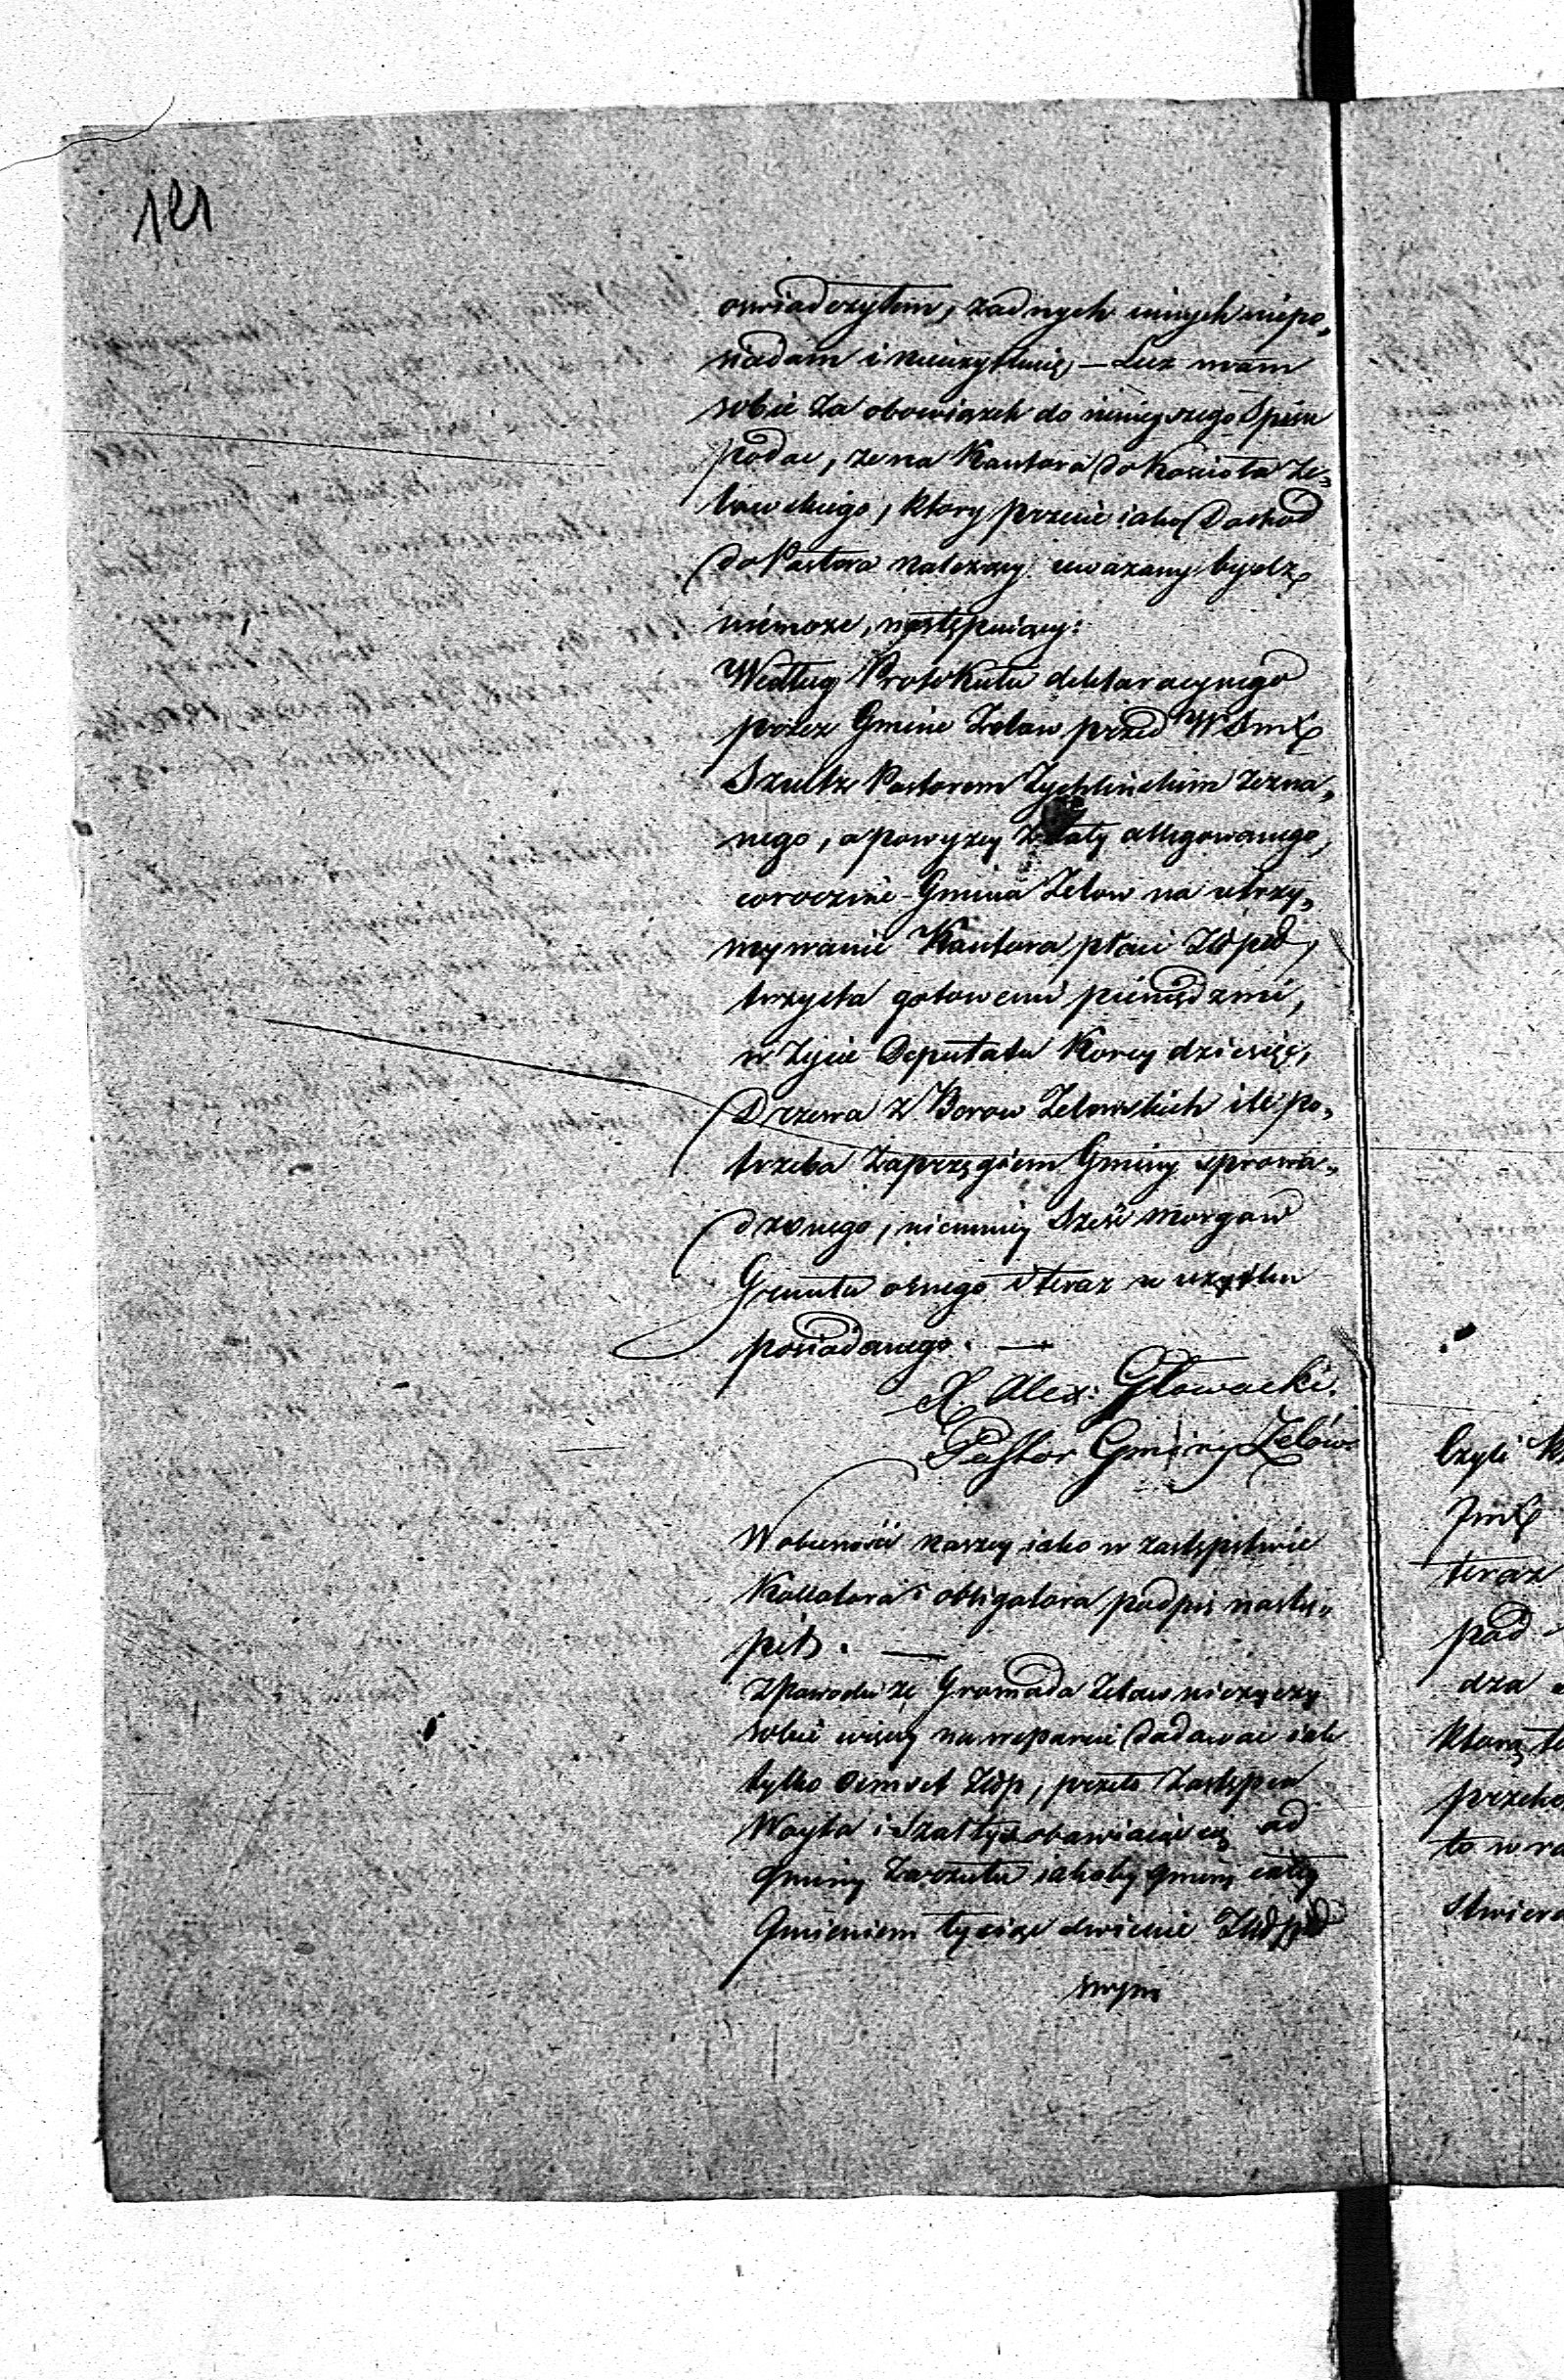 121
oswiadczyłem, zadnych innych niepo„
siadam i nieuzytkuię, — Lecz mam
sobie za obowiązek do ninieyszego Spisu
podac, ze na Kantora do Kościoła Ze„
lowskiego, ktory przecie iako Dochod
do Pastora nalezący uwazany bydz
niemoze, następuiący:
Według Protokułu deklaracyinego
przez Gmine Zelow przed
Szultz Pastorem Zychlińskim zezna„
nego, a powyzey allegowanego,
corocznie Gmina Zelow na utrzy„
mywanie Kantora płaci Złp
trzysta gotowemi pieniędzmi,
w Zycie Deputatu Korcy dziesięć,
Drzewa z Borow Zelowskich ile po„
trzeba Zaprzęgiem Gminy sprowa„
dzonego, niemniey Sześć Morgow
Gruntu ornego i teraz w uzytku
posiadanego. —
X. Alex: Głowacki.
Pastor Gminy Zelów
W obecności naszey iako w zastępstwie
Kollatora i obligatora podpis nastą„
pił. —
Z powodu ze Gromada Zelow nieżyczy
sobie więcey na wsparcie dodawac iak
tylko Osmset Złp, przeto Zastępca
Woyta i Szołtys obawiaiąc się od
Gminy Zarzutu iakoby gminę całą
Gnieniem tysiąc dwieście
swym
Czyli
Imć
teraz
pod
dza
ktorą
to w